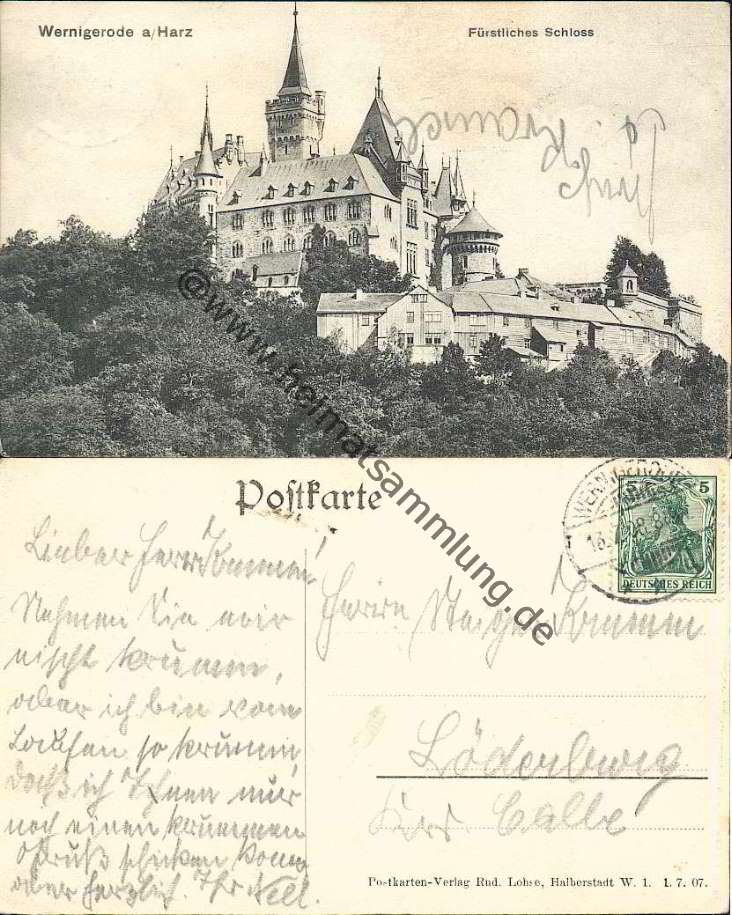 Wernigerode a/Harz
Fürstliches Schloss
© www.heimatsammlung.de
Postkarte
WERNIGERODE
5 5
DEUTSCHES REICH
Lieber Herr Krummen!
Nehmen Sie mir
nicht krumm,
aber ich bin vom
Laufen so krumm,
daß ich Ihnen nur
noch einen krummen
Gruß schicken kann,
aber herzlich. Ihr
Herrn
Löderburg
Krs. Calbe
Postkarten-Verlag Rud. Lohse, Halberstadt W. 1. 1. 7. 07.